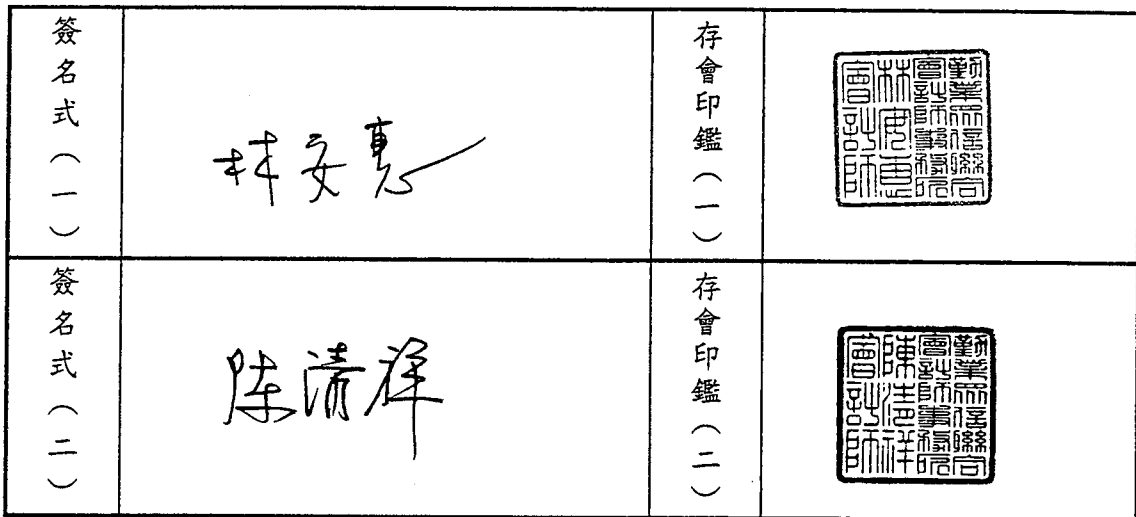 簽名式（一）
林安惠
存會印鑑（一）
勤業眾信聯合
會計師事務所
林安惠
會計師
簽名式（二）
陳清祥
存會印鑑（二）
勤業眾信聯合
會計師事務所
陳清祥
會計師